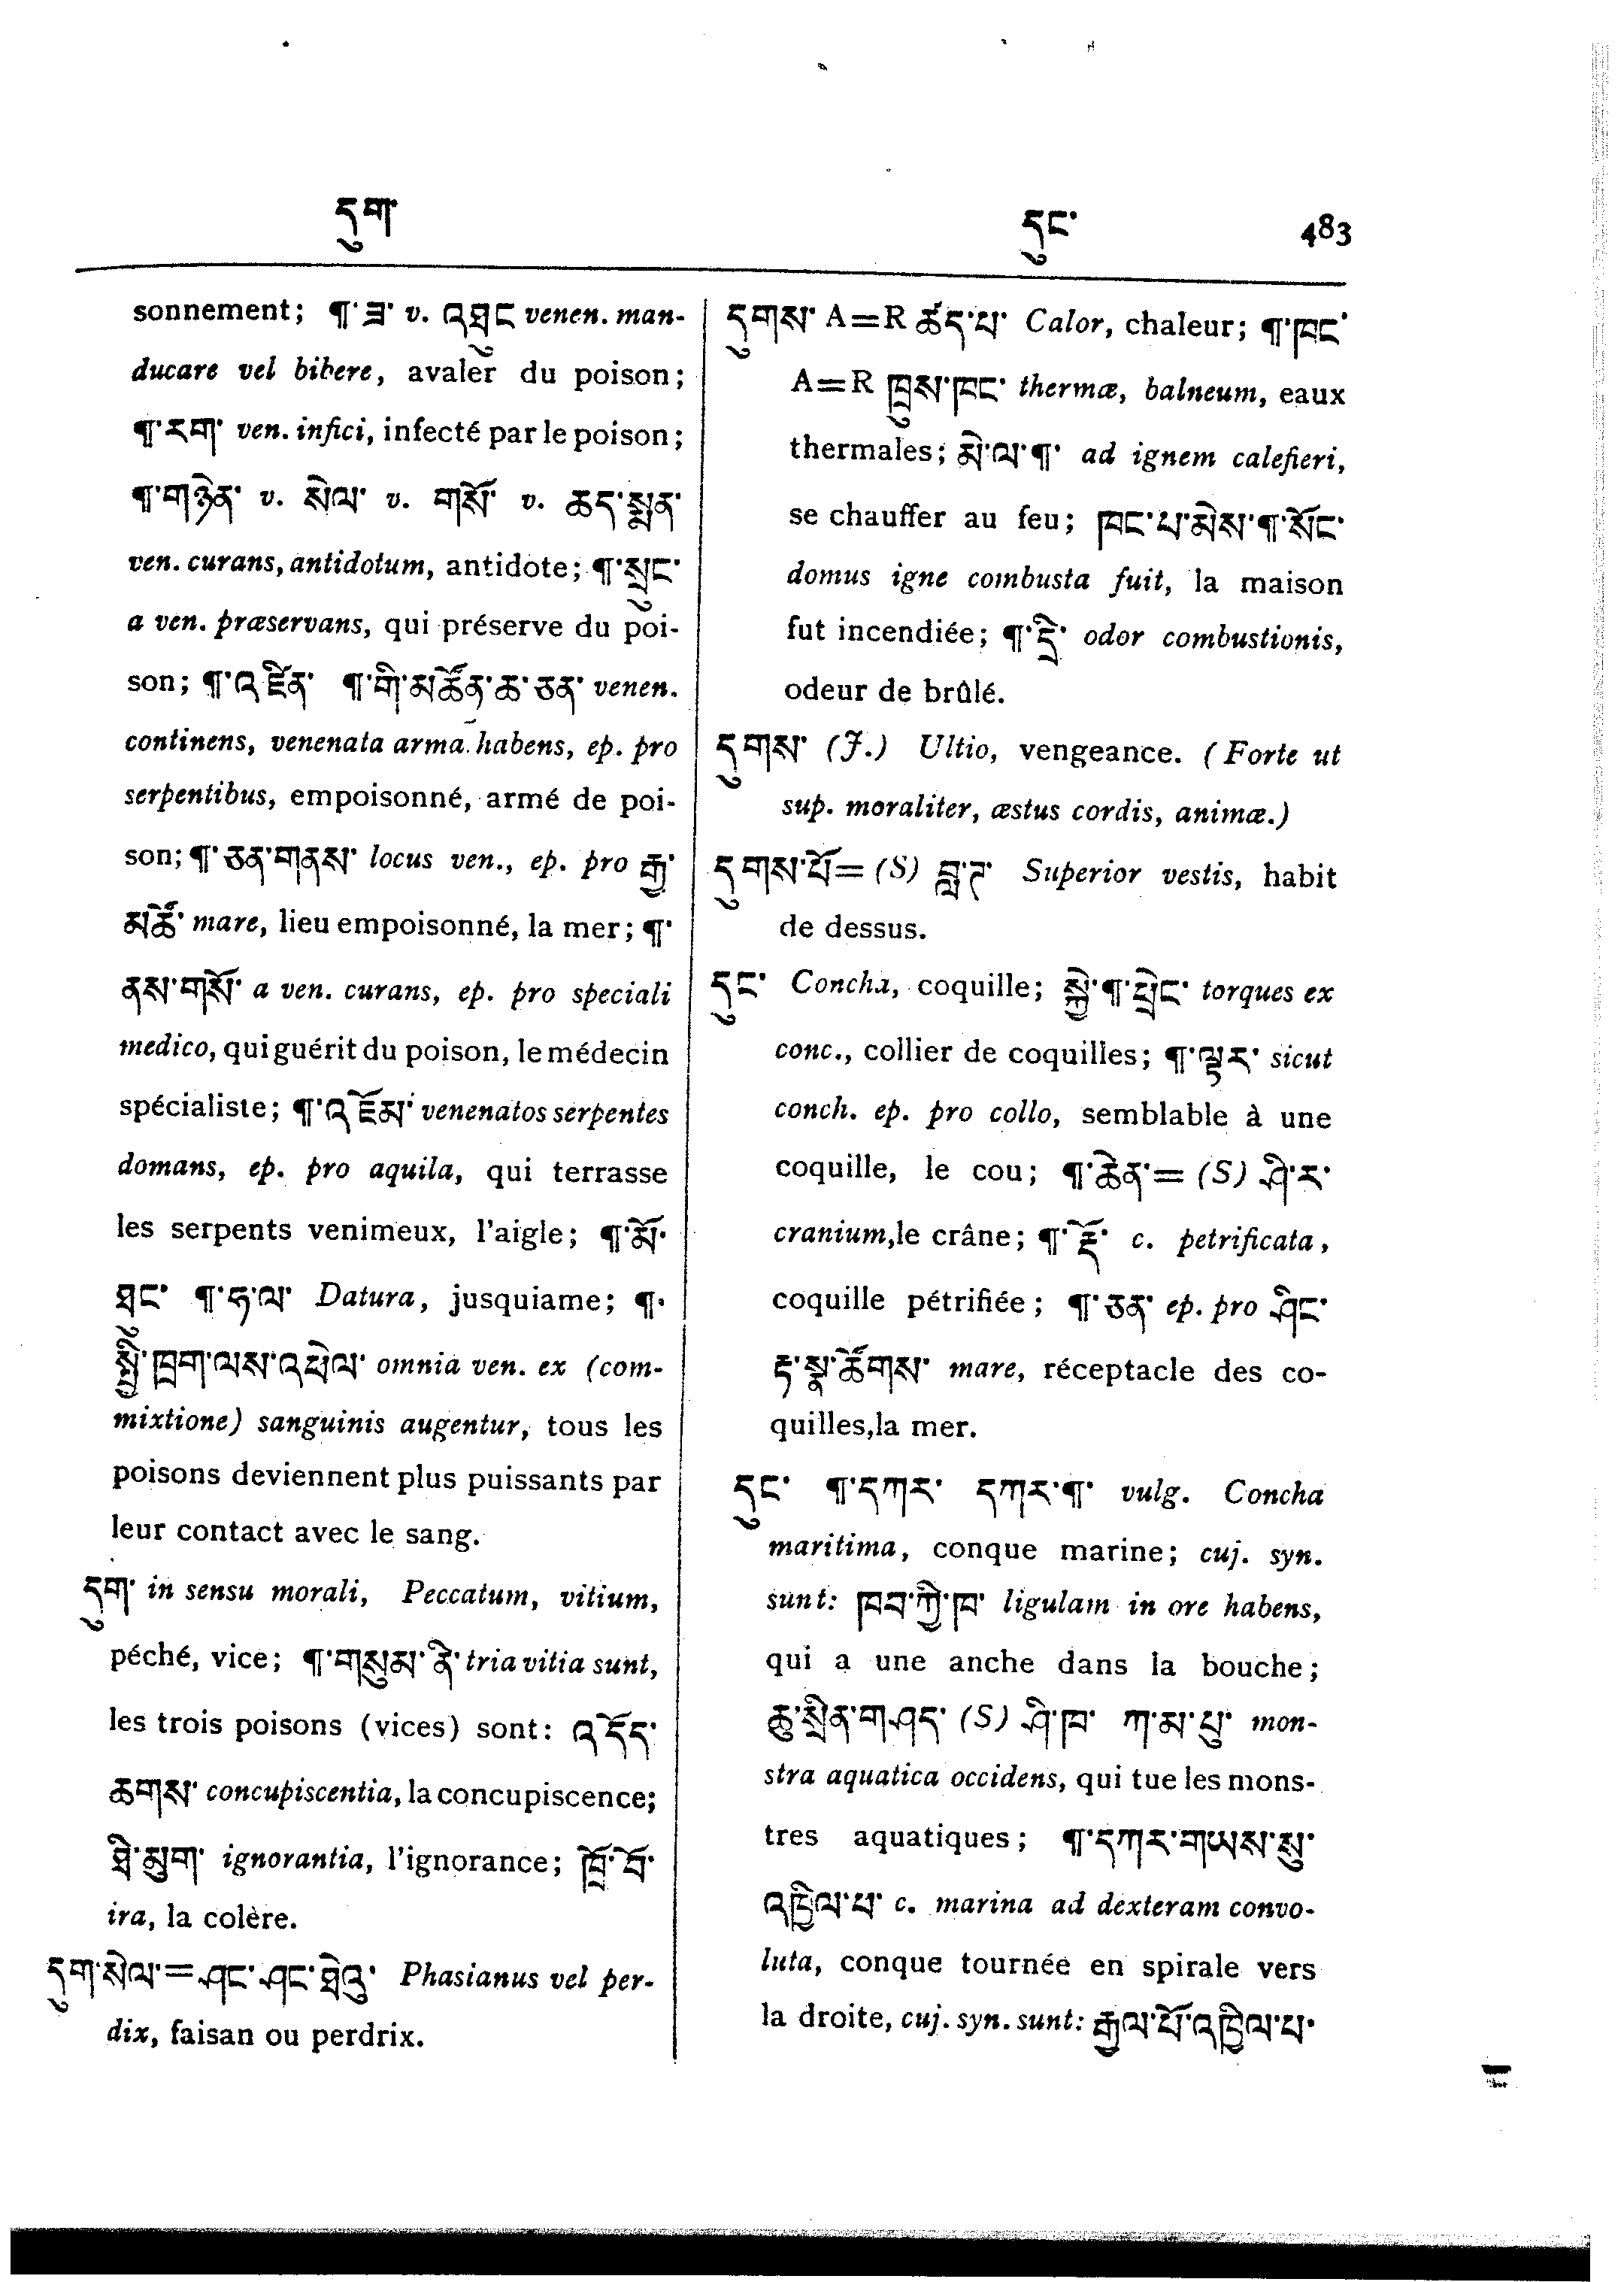 དུག་
དུང་
483
sonnement; ¶་ཟ་ v. འཐུང venen. man-
ducare vel bibere, avaler du poison;
¶་རག་ ven. infici, infecté par le poison;
¶་གཉེན་ v. སེལ་ v. གསོ་ v. ཆད་སྨན་
ven. curans, antidotum, antidote; ¶་སྲུང་
a ven. præservans, qui préserve du poi-
son; ¶་འཛིན་ ¶་གི་མཚོན་ཆ་ཅན་ venen.
continens, venenata arma habens, ep. pro
serpentibus, empoisonné, armé de poi-
son; ¶་ཅན་གནས་ locus ven., ep. pro རྒྱ་
མཚོ་ mare, lieu empoisonné, la mer; ¶་
ནས་གསོ་ a ven. curans, ep. pro speciali
medico, qui guérit du poison, le médecin
spécialiste; ¶་འཇོམ་ venenatos serpentes
domans, ep. pro aquila, qui terrasse
les serpents venimeux, l'aigle; ¶་མོ་
ཐུང་ ¶་ཧ་ལ་ Datura, jusquiame; ¶་
སྤྱི་ཁྲག་ལས་འཕེལ་ omnia ven. ex (com-
mixtione) sanguinis augentur, tous les
poisons deviennent plus puissants par
leur contact avec le sang.
དུག་ in sensu morali, Peccatum, vitium,
péché, vice; ¶་གསུམ་ནི་ tria vitia sunt,
les trois poisons (vices) sont: འདོད་
ཆགས་ concupiscentia, la concupiscence;
ཐི་མུག་ ignorantia, l'ignorance; ཁྲོ་བོ་
ira, la colère.
དུག་སེལ་=ཤང་ཤང་ཐེའུ་ Phasianus vel per-
dix, faisan ou perdrix.
དུགས་ A=R ཚད་པ་ Calor, chaleur; ¶་ཁང་
A=R ཁྲུས་ཁང་ thermæ, balneum, eaux
thermales; མེ་ལ་¶་ ad ignem calefieri,
se chauffer au feu; ཁང་པ་མེས་¶་སོང་
domus igne combusta fuit, la maison
fut incendiée; ¶་དྲི་ odor combustionis,
odeur de brûlé.
དུགས་ (J.) Ultio, vengeance. (Forte ut
sup. moraliter, æstus cordis, animæ.)
དུགས་པོ=(S) བླ་ Superior vestis, habit
de dessus.
དུང་ Concha, coquille; སྐྱེ་¶་ཕྲེང་ torques ex
conc., collier de coquilles; ¶་ལྟར་ sicut
conch. ep. pro collo, semblable à une
coquille, le cou; ¶་ཆེན་=(S) ཤི་ར་
cranium, le crâne; ¶་རྡོ་ c. petrificata,
coquille pétrifiée; ¶་ཅན་ ep. pro ཤིང་
རྟ་སྣ་ཚོགས་ mare, réceptacle des co-
quilles, la mer.
དུང་ ¶་དཀར་ དཀར་¶་ vulg. Concha
maritima, conque marine; cuj. syn.
sunt: ཁབ་ཀྱི་ཁ་ ligulam in ore habens,
qui a une anche dans la bouche;
ཆུ་སྲིན་གཤད་ (S) ཤི་ཁ་ ཀ་མ་པུ་ mon-
stra aquatica occidens, qui tue les mons-
tres aquatiques; ¶་དཀར་གཡས་སུ་
འཁྱིལ་པ་ c. marina ad dexteram convo-
luta, conque tournée en spirale vers
la droite, cuj. syn. sunt: རྒྱལ་པོ་འཁྱིལ་པ་